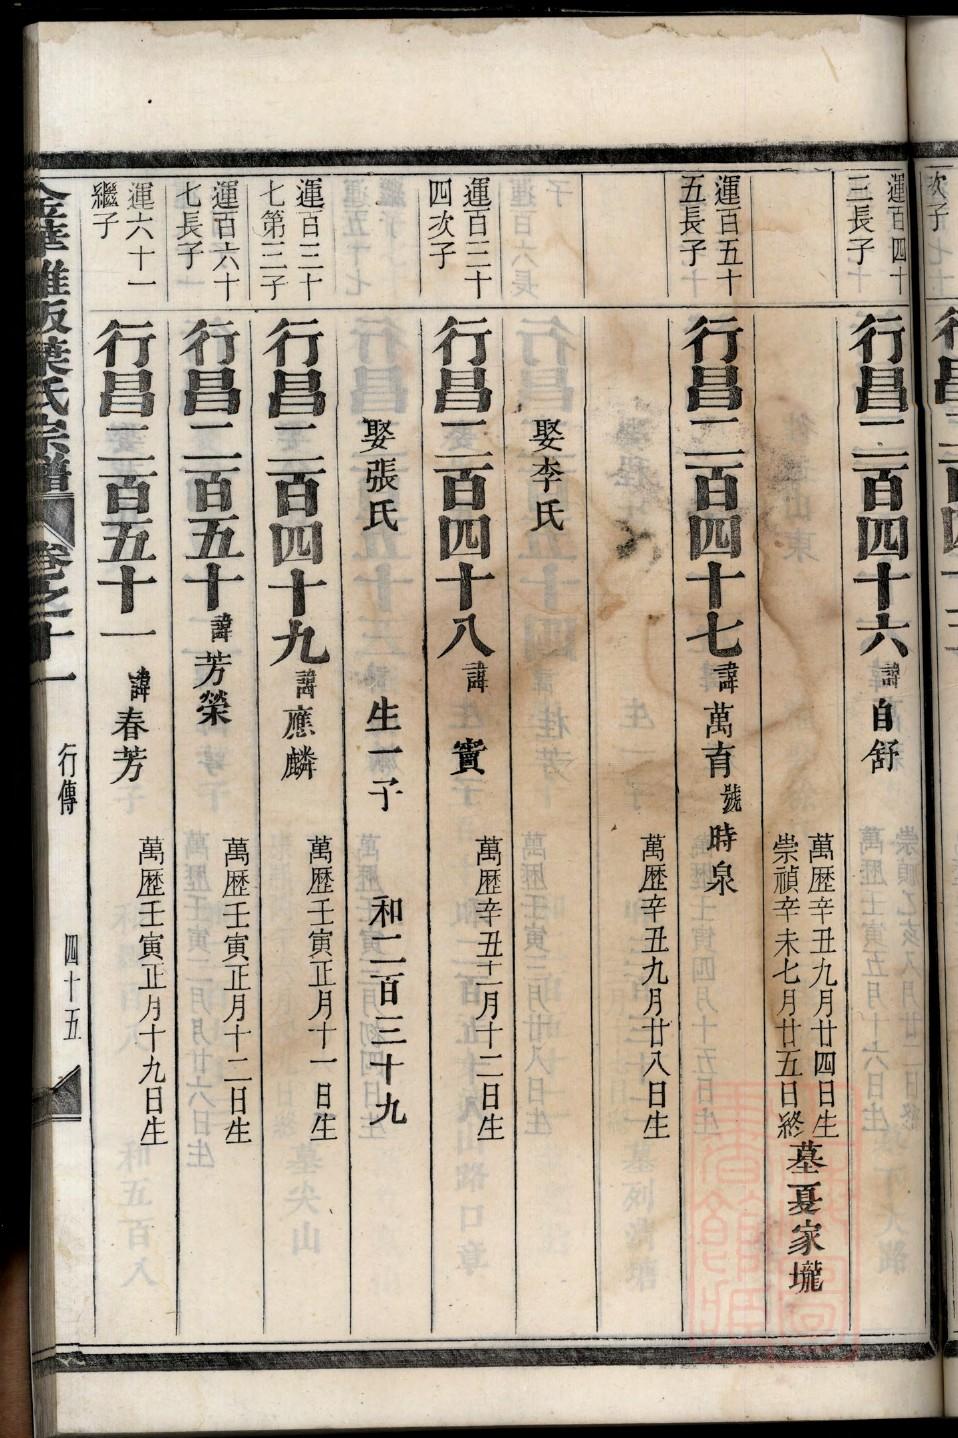 運百四十
三長子
行昌二百四十六 諱 自舒
萬歴辛丑九月廿四日生
崇禎辛未七月廿五日終
墓夏家壠
運百五十
五長子
行昌二百四十七 諱 萬育 號 時泉
萬歴辛丑九月廿八日生
娶李氏
運百三十
四次子
行昌二百四十八 諱 實
萬歴辛丑十一月十二日生
娶張氏 生一子 和二百三十九
運百三十
七第三子
行昌二百四十九 諱 應麟
萬歴壬寅正月十一日生
運百六十
七長子
行昌二百五十 諱 芳榮
萬歴壬寅正月十二日生
運六十一
繼子
行昌二百五十一 諱 春芳
萬歴壬寅正月十九日生
葉氏宗譜 卷之十一 行傳 四十五